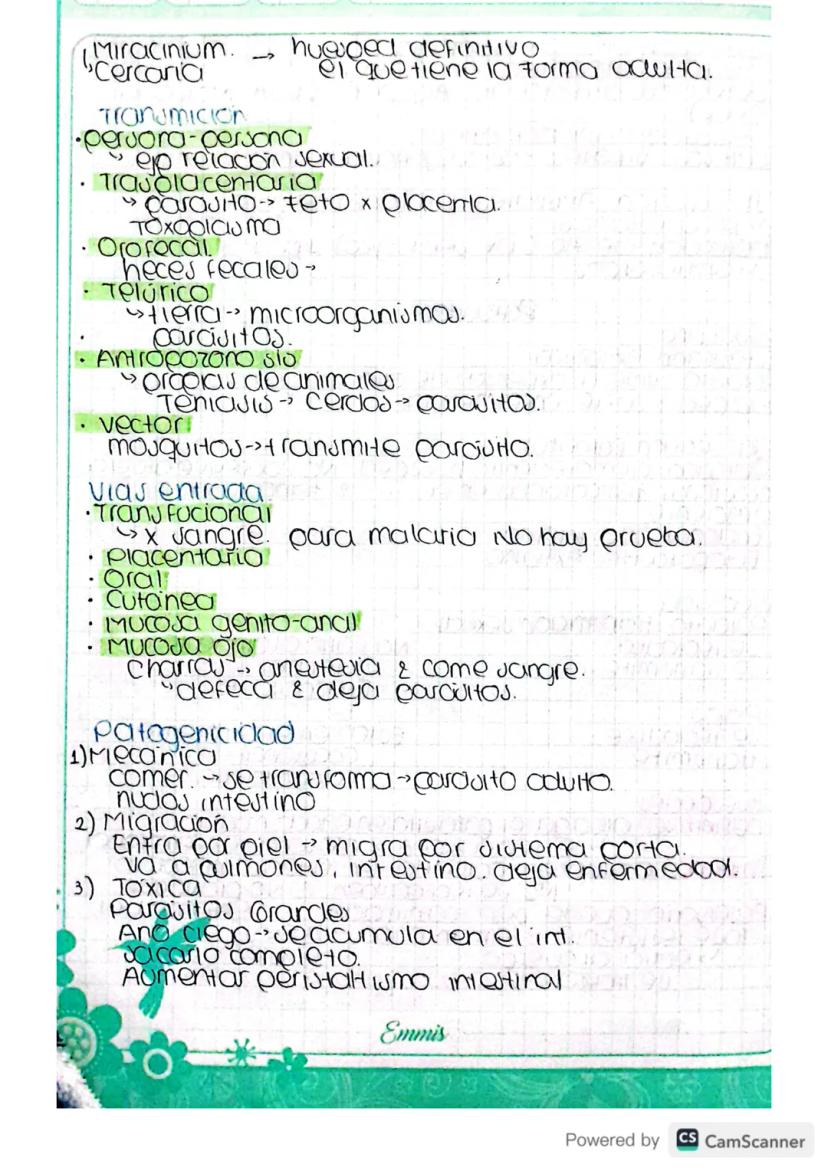 Miracinium. → huesped definitivo
Cercaria el que tiene la forma adulta.
Transmicion
• persona-persona
↳ ejp relacion sexual.
• Trasplacentaria
↳ parasito → feto x placenta.
Toxoplasma
• Orofecal.
heces fecales →
• Telúrico
↳ tierra → microorganismos.
• parásitos.
• Antropozonosis
↳ propias de animales
Teniasis → cerdos → parasitos.
• Vector
mosquitos → transmite parásito.
Vias entrada
• Transfucional
↳ x sangre. para malaria No hay prueba.
• Placentario
• Oral
• Cutánea
• Mucosa genito-anal
• Mucosa ojo
charras → anestesia & come sangre.
↳ defeca & deja parásitos.
Patogenicidad
1) Mecánica
comer. → se transforma → parásito adulto.
nudos intestino
2) Migración
Entra por piel → migra por sistema porta.
va a pulmones, intestino. deja enfermedad.
3) Toxica
Parásitos Grandes
Ano ciego → se acumula en el int.
sacarlo completo.
Aumentar peristaltismo intestinal
Emmis
Powered by CS CamScanner